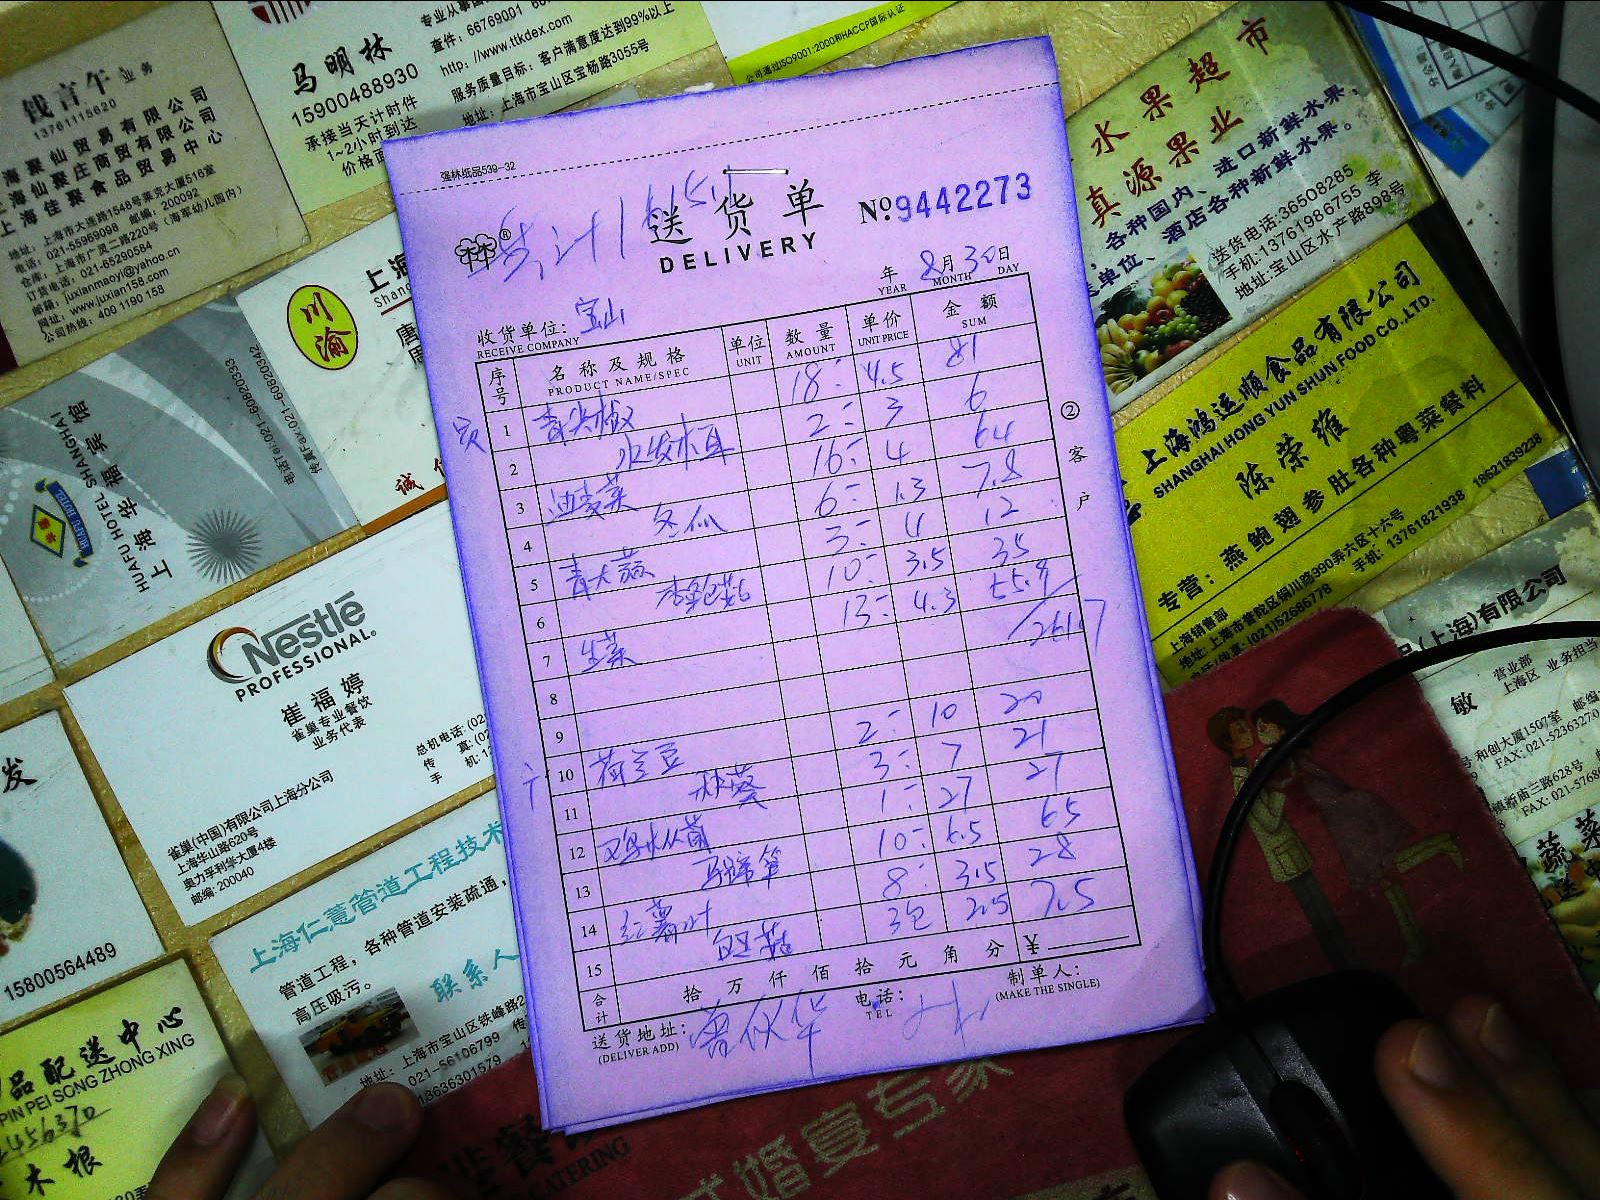 钱言午 业务
13761115620
上海聚仙贸易有限公司
上海仙聚庄商贸有限公司
上海佳聚食品贸易中心
地址: 上海市大连路1548号莱克大厦516室
电话: 021-55969098 邮编: 200092
仓库: 上海市广灵二路220号 (海军幼儿园内)
订货电话: 021-65290584
邮箱: juxianmaoyi@yahoo.cn
网址: www.juxian158.com
公司热线: 409 1190 158
马明林
15900488930
承接当天计时件
1~2小时到达
查件: 66769001
http: //www.ttkdex.com
服务质量目标: 客户满意度达到99%以上
地址: 上海市宝山区宝杨路3055号
公司通过ISO9001:2000和HACCP国际认证
水果超市
真源果业
各种国内、进口新鲜水果,
酒店各种新鲜水果。
送货电话:36508285
手机:13761986755 李
地址:宝山区水产路898号
川渝
HUAFU HOTEL SHANGHAI
上海华福宾馆
电话Tel:021-60820333
传真Fax:021-60820342
强林纸品539-32
送货单
DELIVERY
No.9442273
年 8月30日
YEAR MONTH DAY
收货单位: 宝山
RECEIVE COMPANY
序号 名称及规格 单位 数量 单价 金额
PRODUCT NAME/SPEC UNIT AMOUNT UNIT PRICE SUM
1 青尖椒 18 4.5 81
2 水发木耳 2 3 6
3 油麦菜 16 4 64
4 冬瓜 6 1.3 7.8
5 青大蒜 3 4 12
6 杏鲍菇 10 3.5 35
7 生菜 13 4.3 55.9
8 261.7
9
10 荷兰豆 2 10 20
11 秋葵 3 7 21
12 鸡枞菌 1 27 27
13 马蹄笋 10 6.5 65
14 红薯叶 8 3.5 28
15 白玉菇 3包 2.5 7.5
合计 拾万仟佰拾元角分 ¥
送货地址:
(DELIVER ADD)
电话:
TEL
制单人:
(MAKE THE SINGLE)
②客户
上海鸿运顺食品有限公司
SHANGHAI HONG YUN SHUN FOOD CO.,LTD.
陈荣雄
专营: 燕鲍翅参肚各种粤菜餐料
上海销售部
地址: 上海市普陀区铜川路990弄六区十六号
(021)52686778
手机: 13761821938 18621839238
Nestlé
PROFESSIONAL
崔福婷
雀巢专业餐饮
业务代表
总机电话: (02
传 真: (02
手 机: 1
雀巢(中国)有限公司上海分公司
上海华山路620号
奥力孚利华大厦4楼
邮编: 200040
上海仁薏管道工程技术
管道工程, 各种管道安装疏通,
高压吸污。
联系人
地址: 上海市宝山区铁峰路2
021-56106799
发
15800564489
品配送中心
PIN PEI SONG ZHONG XING
木根
(上海)有限公司
营业部 业务担当
上海区
敏
和创大厦1507室 邮编
FAX: 021-52363270
镇新庙三路628号
蔬菜
送中
CATERING
式婚宴专家